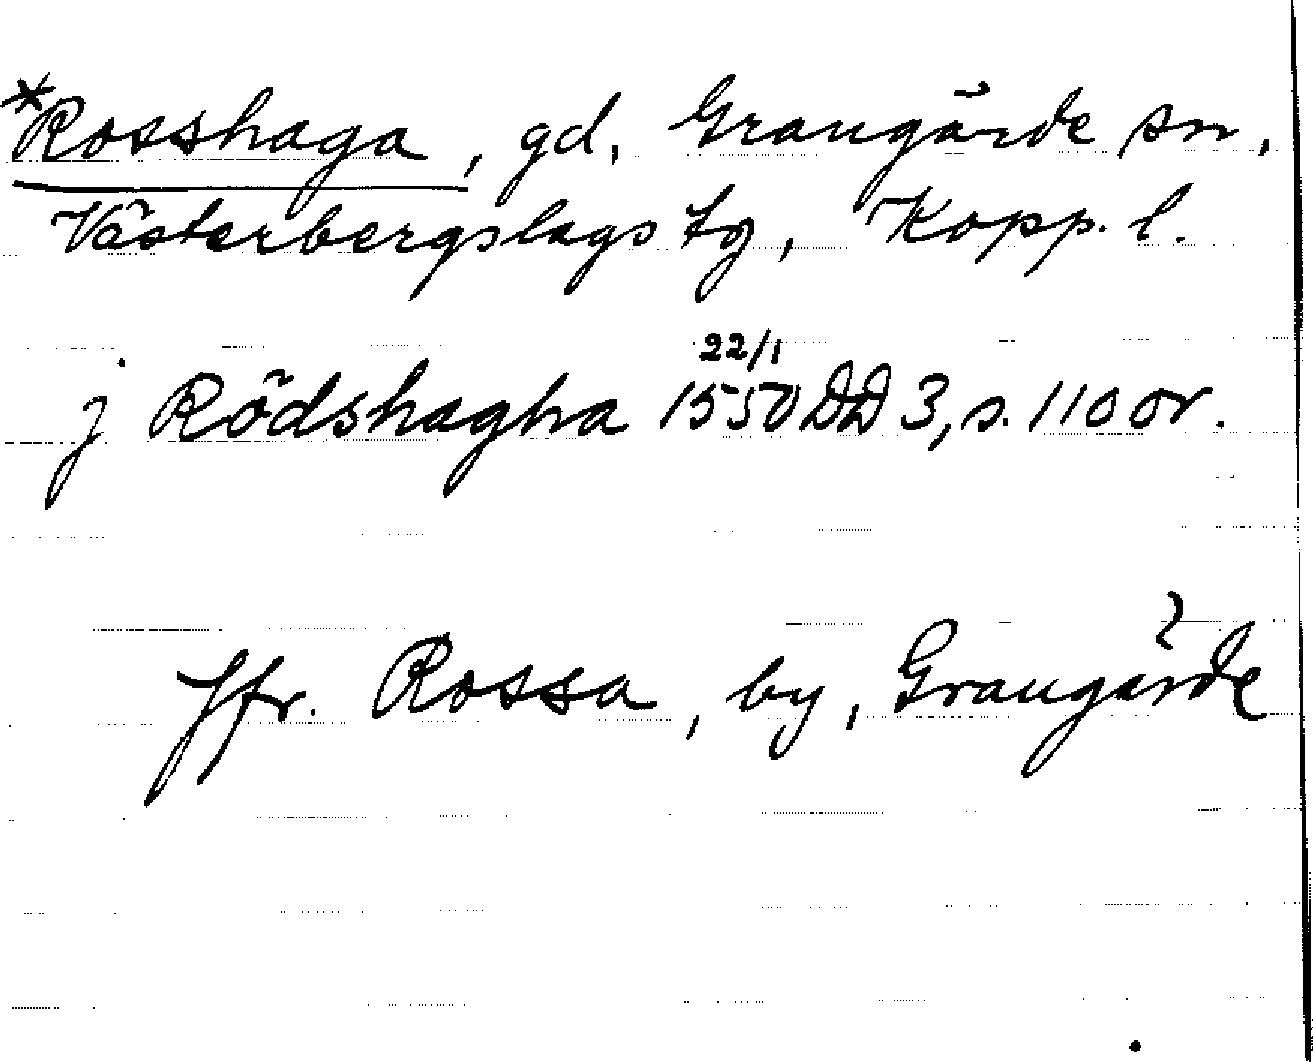 *Rosshaga, gd, Grangärde sn,
Västerbergslags tg, Kopp. l.
j Rödshagha 22/1 1550 DD 3, s. 110 or.
Jfr. Rossa, by, Grangärde